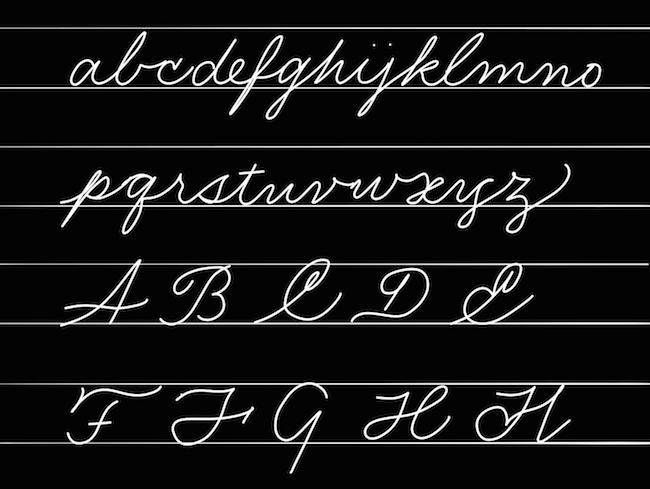 abcdefghijklmno
pqrstuvwxyz
A B C D E
F F G H H